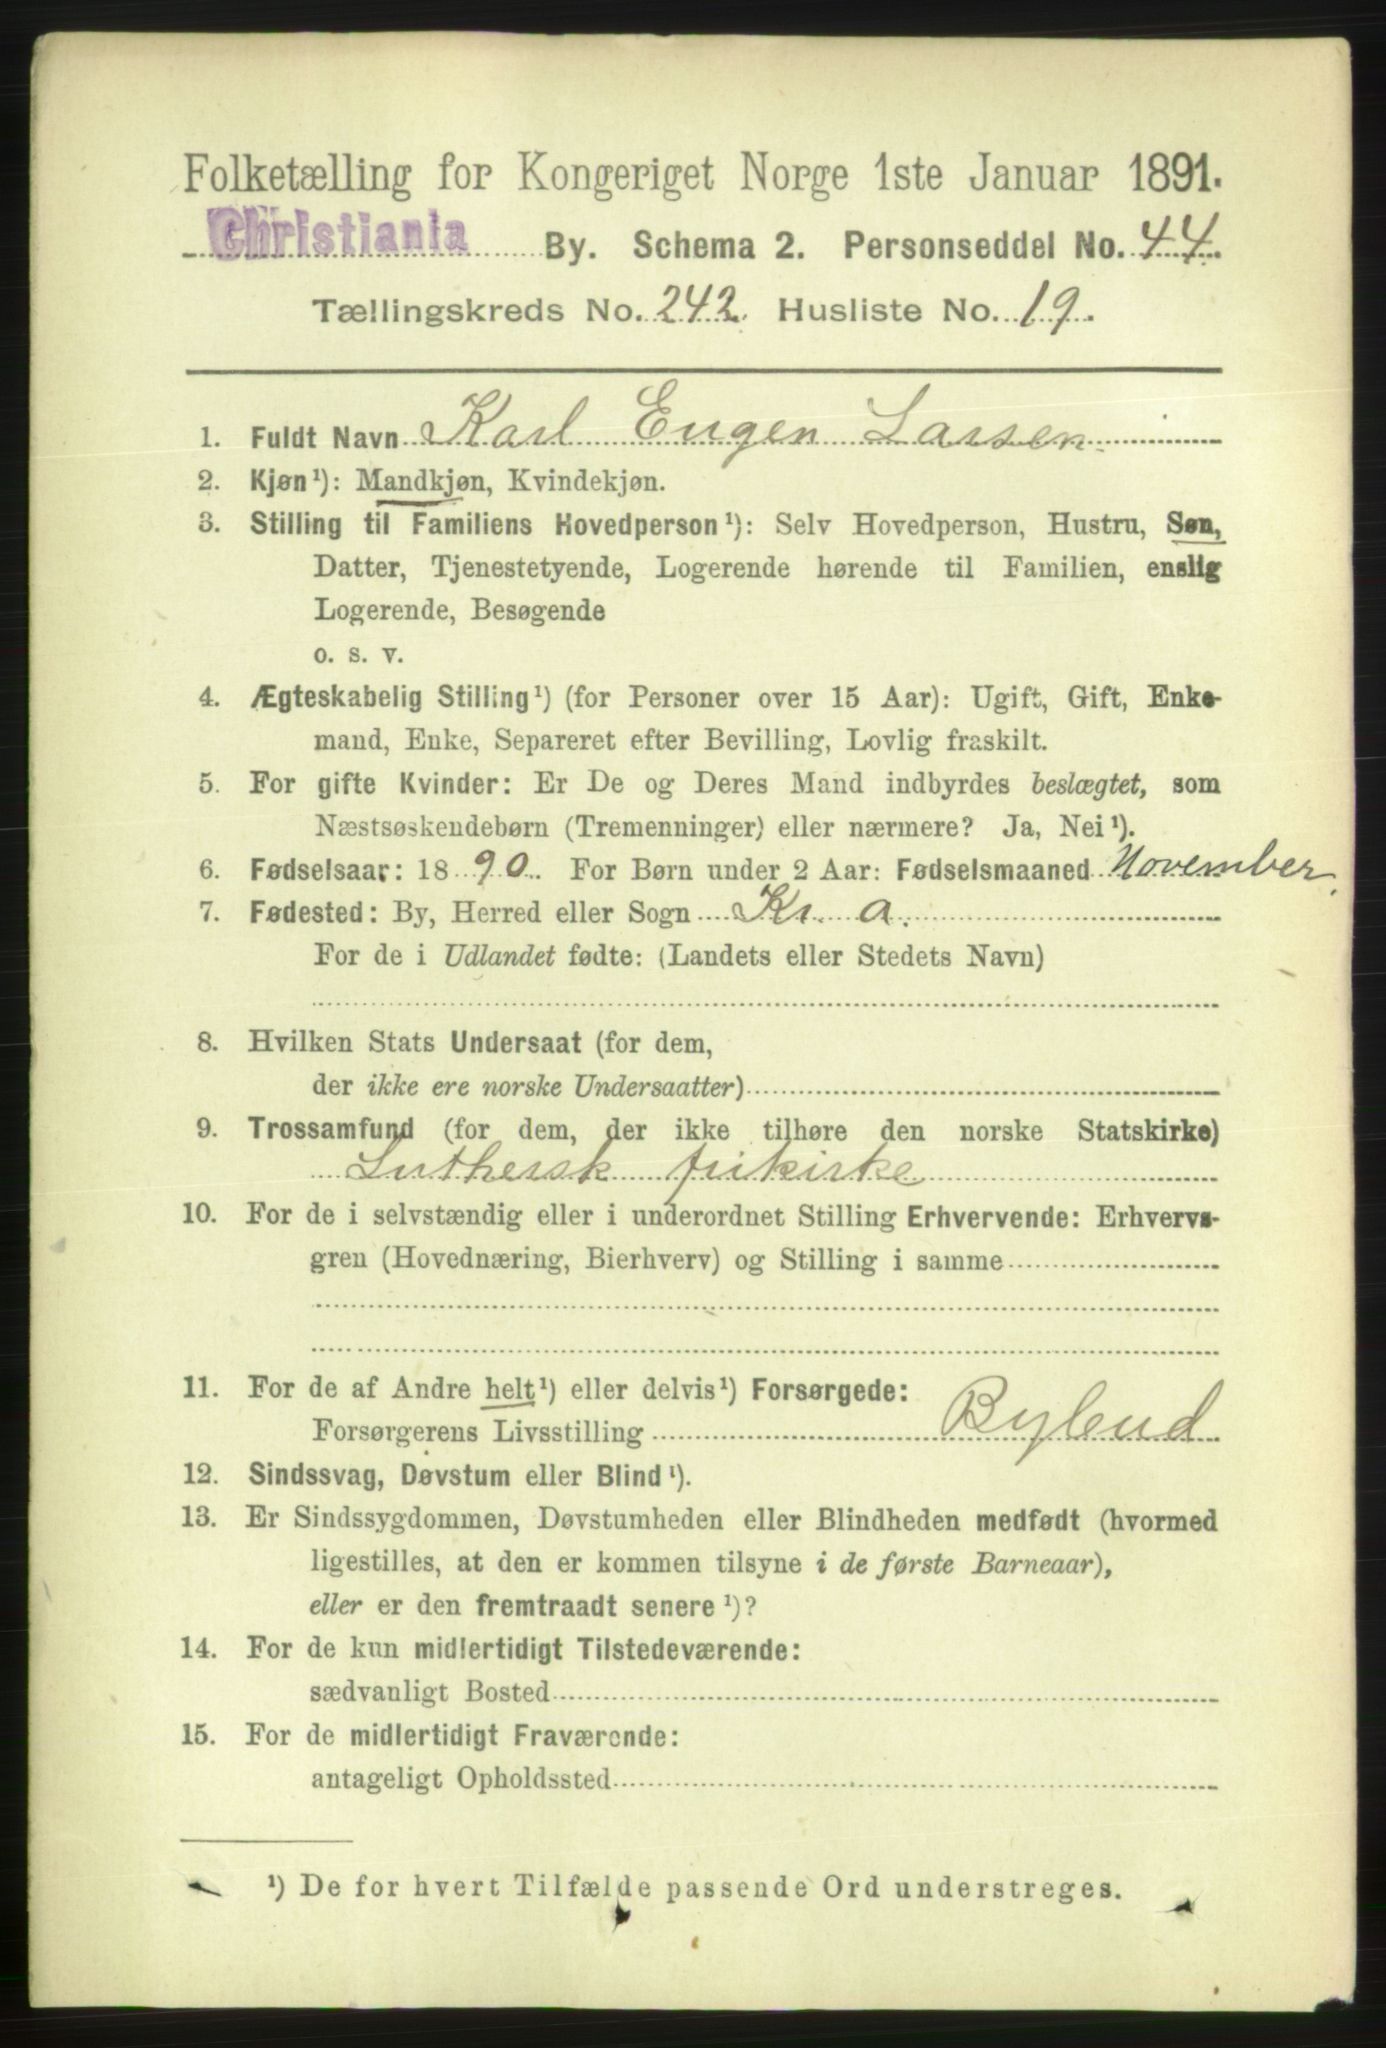 Folketælling for Kongeriget Norge 1ste Januar 1891.
Christiania By. Schema 2. Personseddel No. 44.
Tællingskreds No. 242. Husliste No. 19.
1. Fuldt Navn Karl Eugen Larsen
2. Kjøn¹): Mandkjøn, Kvindekjøn.
3. Stilling til Familiens Hovedperson¹): Selv Hovedperson, Hustru, Søn,
Datter, Tjenestetyende, Logerende hørende til Familien, enslig
Logerende, Besøgende
o. s. v.
4. Ægteskabelig Stilling¹) (for Personer over 15 Aar): Ugift, Gift, Enke-
mand, Enke, Separeret efter Bevilling, Lovlig fraskilt.
5. For gifte Kvinder: Er De og Deres Mand indbyrdes beslægtet, som
Næstsøskendebørn (Tremenninger) eller nærmere? Ja, Nei¹).
6. Fødselsaar: 1890. For Børn under 2 Aar: Fødselsmaaned November.
7. Fødested: By, Herred eller Sogn Kr. a.
For de i Udlandet fødte: (Landets eller Stedets Navn)
8. Hvilken Stats Undersaat (for dem,
der ikke ere norske Undersaatter)
9. Trossamfund (for dem, der ikke tilhøre den norske Statskirke)
Luthersk frikirke
10. For de i selvstændig eller i underordnet Stilling Erhvervende: Erhvervs-
gren (Hovednæring, Bierhverv) og Stilling i samme
11. For de af Andre helt¹) eller delvis¹) Forsørgede:
Forsørgerens Livsstilling Bylund
12. Sindssvag, Døvstum eller Blind¹).
13. Er Sindssygdommen, Døvstumheden eller Blindheden medfødt (hvormed
ligestilles, at den er kommen tilsyne i de første Barneaar),
eller er den fremtraadt senere¹)?
14. For de kun midlertidigt Tilstedeværende:
sædvanligt Bosted
15. For de midlertidigt Fraværende:
antageligt Opholdssted
¹) De for hvert Tilfælde passende Ord understreges.